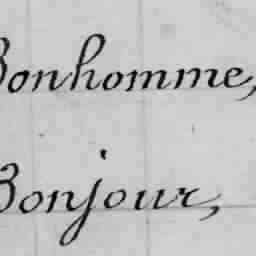 Bonhomme,
Bonjour,